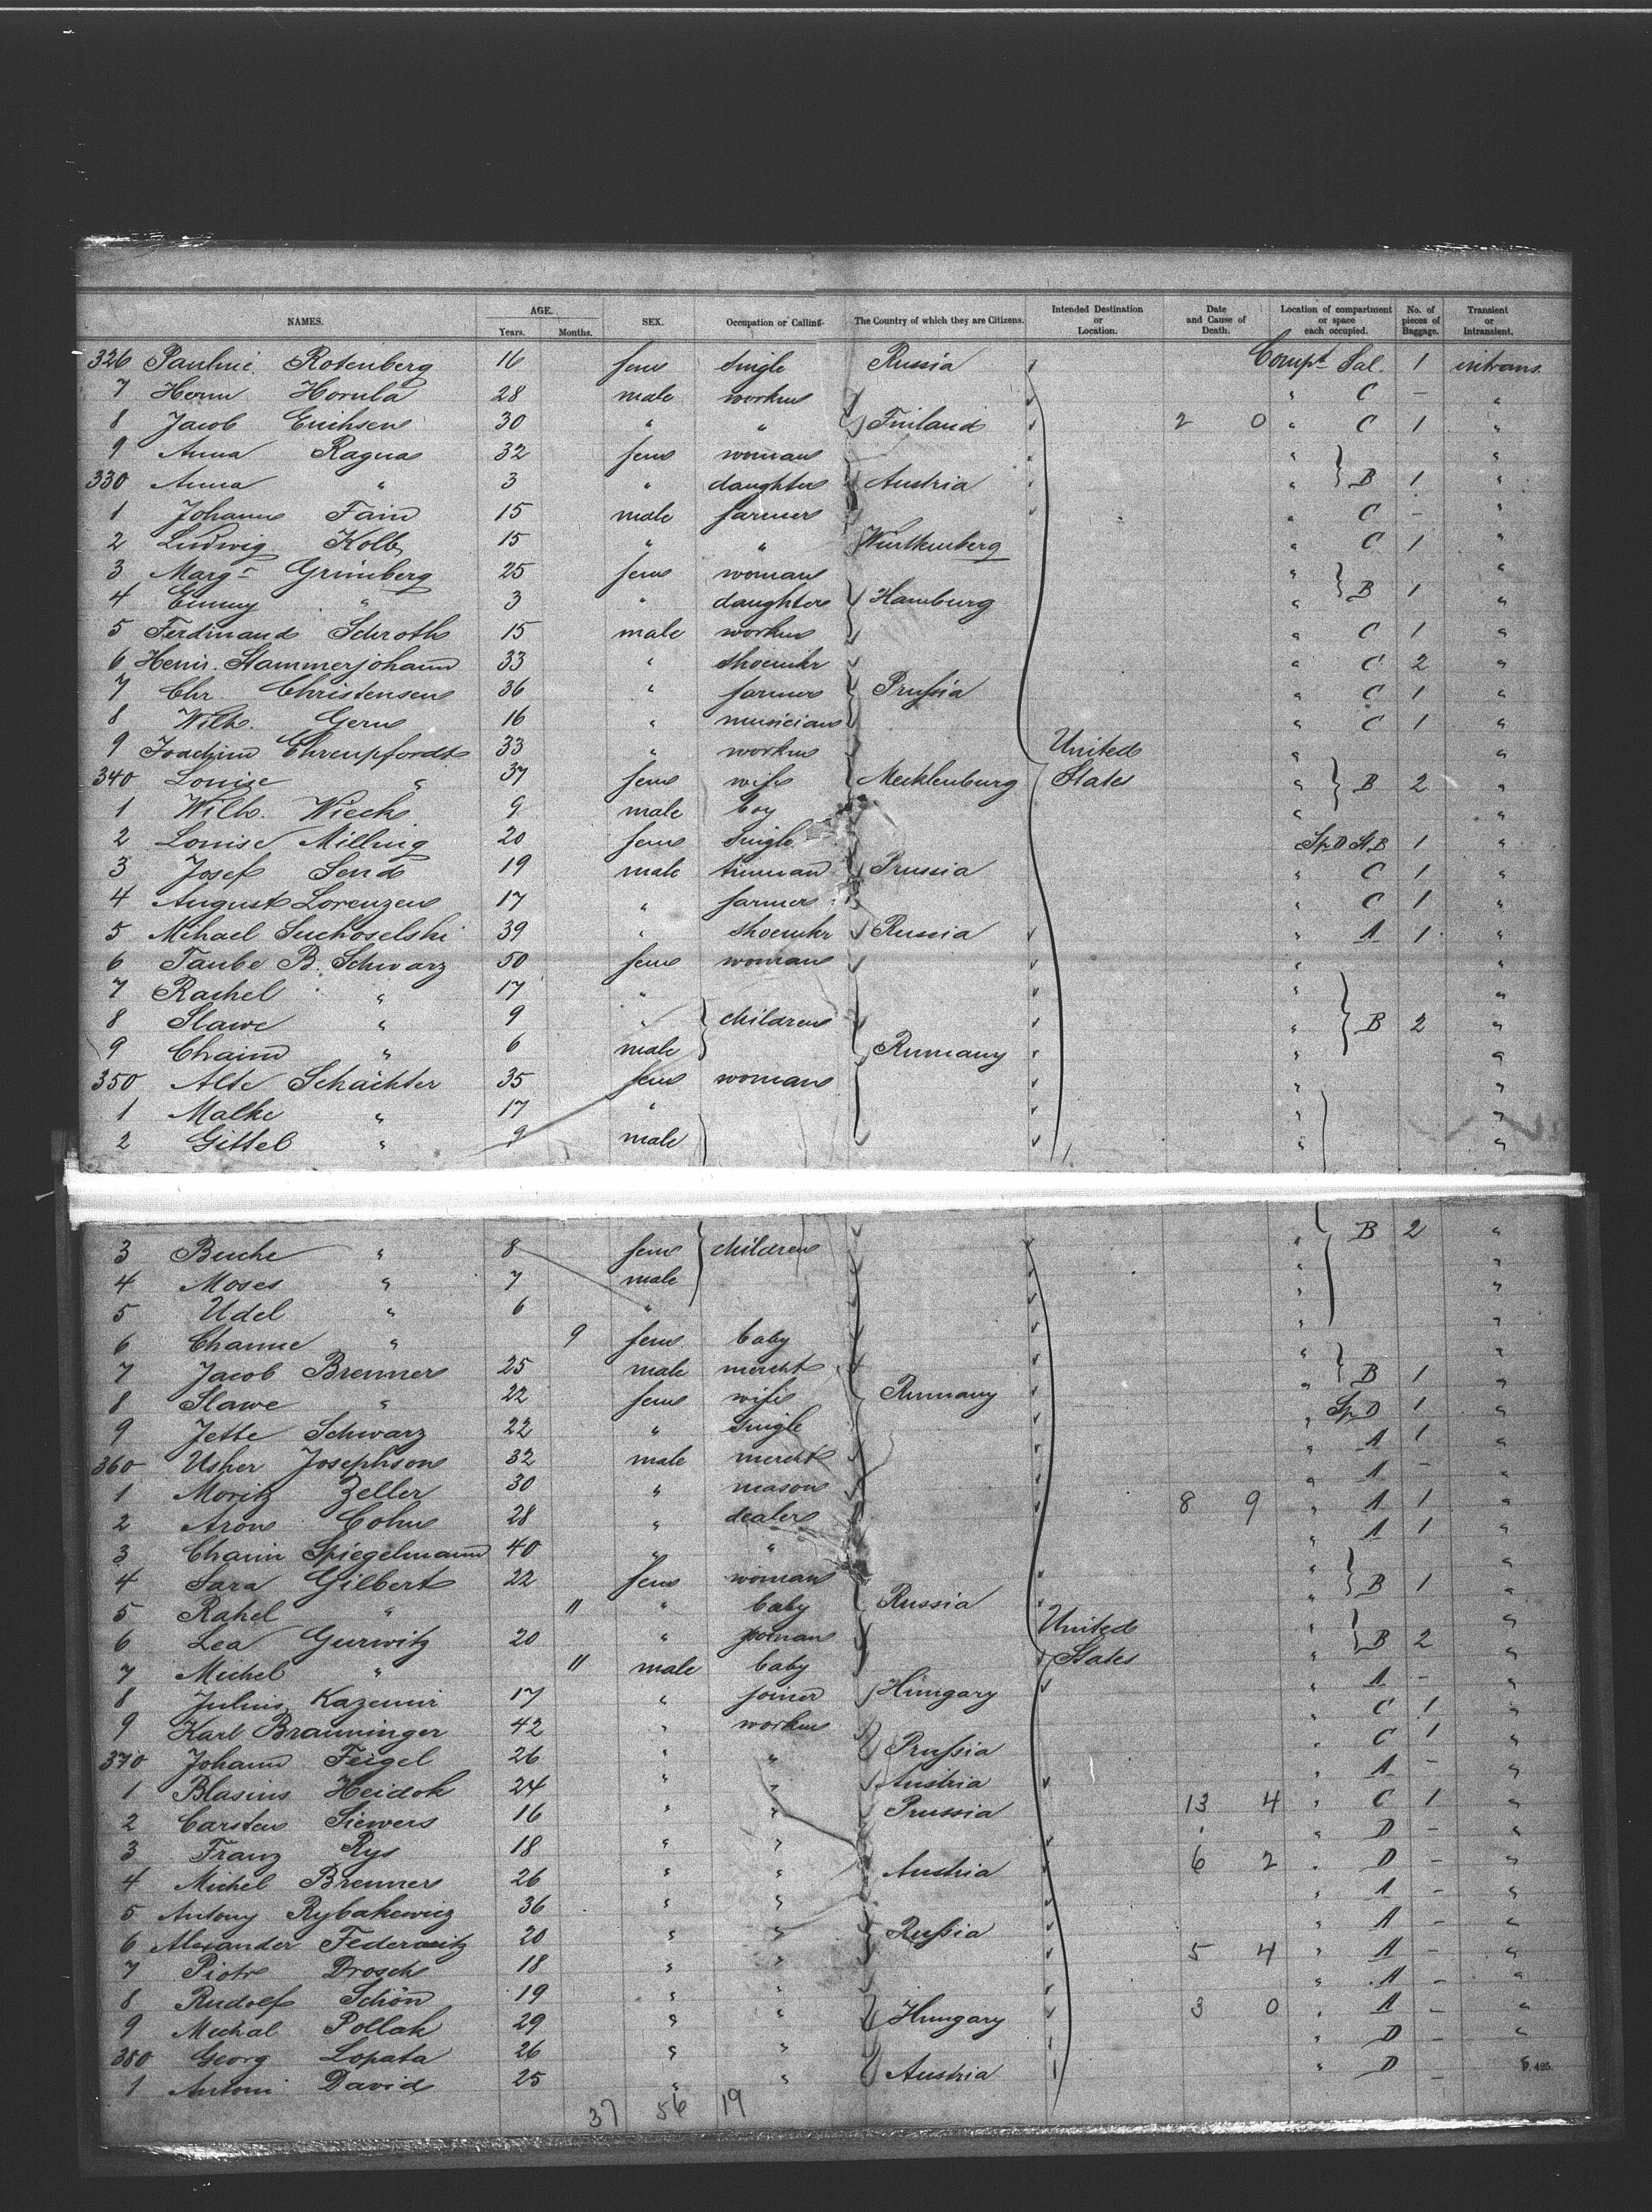 NAMES. AGE. Years. Months. SEX. Occupation or Calling. The Country of which they are Citizens. Intended Destination or Location. Date and Cause of Death. Location of compartment or space each occupied. No. of pieces of Baggage. Transient or Intransient.
326 Pauline Rotenberg 16 fem single Russia Compt Sal. 1 intrans.
7 Herm Hornla 28 male workm " C - "
8 Jacob Erichsen 30 " " Finland 2 0 " C 1 "
9 Anna Ragna 32 fem woman " "
330 Anna " 3 " daughter Austria " B 1 "
1 Johann Fain 15 male farmer " C - "
2 Ludwig Kolb 15 " " Wurttemberg " C 1 "
3 Margr Grimberg 25 fem woman " "
4 Emmy " 3 " daughter Hamburg " B 1 "
5 Ferdinand Schroth 15 male workm " C 1 "
6 Heinr. Stammerjohann 33 " shoemkr " C 2 "
7 Chr. Christensen 36 " farmer Prussia " C 1 "
8 Wilh. Gern 16 " musician " C 1 "
9 Joachim Ehrenpfordt 33 " workm United " "
340 Louise " 37 fem wife Mecklenburg States " B 2 "
1 Wilh. Wieck 9 male boy " "
2 Louise Milling 20 fem single Sp. D St. B 1 "
3 Josef Send 19 male tinman Prussia " C 1 "
4 August Lorenzen 17 " farmer " C 1 "
5 Mihael Suchoselski 39 " shoemkr Russia " A 1 "
6 Taube B. Schwarz 50 fem woman " "
7 Rachel " 17 " " "
8 Slawe " 9 " children " B 2 "
9 Chaim " 6 male Rumany " "
350 Alte Schächter 35 fem woman " "
1 Malke " 17 " " "
2 Gittel " 9 male " "
3 Buche " 8 fem children " B 2 "
4 Moses " 7 male " "
5 Udel " 6 " " "
6 Channe " 9 fem baby " "
7 Jacob Brenner 25 male mercht " B 1 "
8 Slawe " 22 fem wife Rumany "
9 Jette Schwarz 22 " single " Sp. D 1 "
360 Usher Josephson 32 male mercht " A 1 "
1 Moritz Zeller 30 " mason " A - "
2 Aron Cohn 28 " dealer 8 9 " A 1 "
3 Chaim Spiegelmann 40 " " " A 1 "
4 Sara Gilbert 22 fem woman " "
5 Rahel " 11 " baby Russia " B 1 "
6 Lea Gurwitz 20 " woman United " "
7 Michel " 11 male baby States " B 2 "
8 Julius Kazemir 17 " joiner Hungary " A - "
9 Karl Brauninger 42 " workm " C 1 "
370 Johann Feigel 26 " " Prussia " C 1 "
1 Blasius Heidok 24 " " Austria " A - "
2 Carsten Siewers 16 " " Prussia 13 4 " C 1 "
3 Franz Rys 18 " " " D - "
4 Michel Brenner 26 " " Austria 6 2 " D - "
5 Antony Rybakewicz 36 " " " A - "
6 Alexander Federowitz 20 " " Russia " A - "
7 Piotr Drosch 18 " " 5 4 " A - "
8 Rudolf Schön 19 " " " A - "
9 Michal Pollak 29 " " Hungary 3 0 " A - "
380 Georg Lopata 26 " " " D - "
1 Antoni David 25 " " Austria " D - 
37 56 19